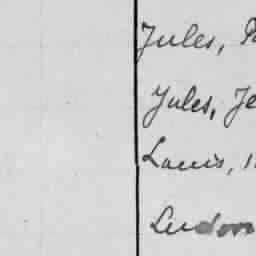 Jules,
Jules, Je
Louis,
Ludov